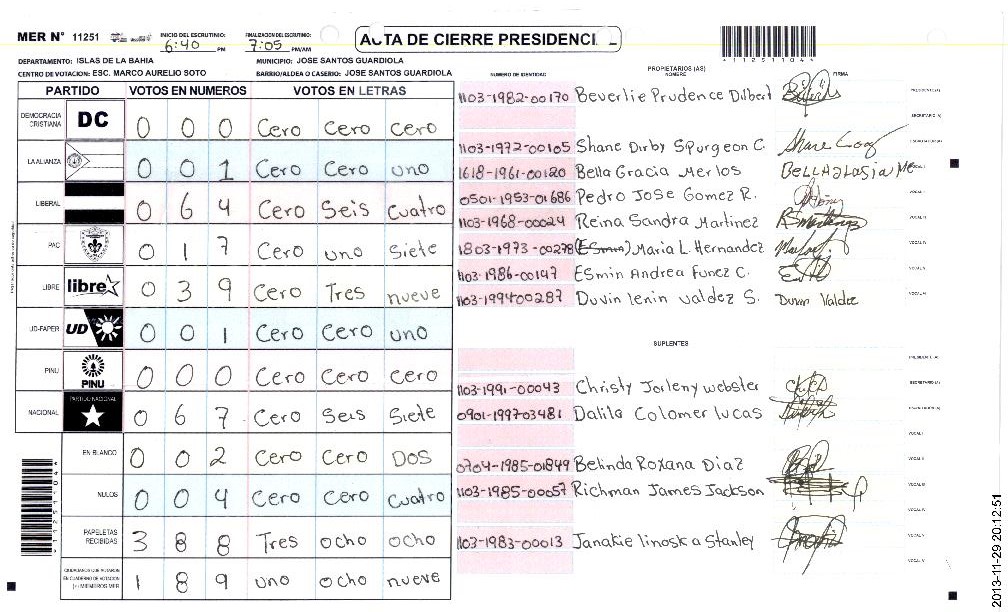 MER Nº 11251
INICIO DEL ESCRUTINIO: 6:40 PM
FINALIZACION DEL ESCRUTINIO: 7:05 PM/AM
ACTA DE CIERRE PRESIDENCI
11251044
DEPARTAMENTO: ISLAS DE LA BAHIA
MUNICIPIO: JOSE SANTOS GUARDIOLA
CENTRO DE VOTACION: ESC. MARCO AURELIO SOTO
BARRIO/ALDEA O CASERIO: JOSE SANTOS GUARDIOLA
PARTIDO VOTOS EN NUMEROS VOTOS EN LETRAS
DEMOCRACIA CRISTIANA DC 0 0 0 Cero Cero Cero
LA ALIANZA 0 0 1 Cero Cero uno
LIBERAL 0 6 4 Cero Seis Cuatro
PAC 0 1 7 Cero uno Siete
LIBRE libre 0 3 9 Cero Tres nueve
UD-FAPER UD 0 0 1 Cero Cero uno
PINU PINU 0 0 0 Cero Cero Cero
NACIONAL PARTIDO NACIONAL 0 6 7 Cero Seis Siete
EN BLANCO 0 0 2 Cero Cero DOS
NULOS 0 0 4 Cero Cero Cuatro
PAPELETAS RECIBIDAS 3 8 8 Tres ocho ocho
CIUDADANOS QUE VOTARON EN CUADERNO DE VOTACION (+) MIEMBROS MER 1 8 9 uno ocho nueve
PROPIETARIOS (AS)
NUMERO DE IDENTIDAD NOMBRE FIRMA
1103-1982-00170 Beverlie Prudence Dilbert PRESIDENTE(A)
SECRETARIO (A)
1103-1972-00105 Shane Dirby Spurgeon C.
1618-1961-00120 Bella Gracia Merlos VOCAL I
0501-1953-01686 Pedro Jose Gomez R.
1103-1968-00024 Reina Sandra Martinez
1803-1973-00278 (Esmin) Maria L. Hernandez VOCAL IV
1103-1986-00147 Esmin Andrea Funez C. VOCAL V
1103-199400287 Duvin lenin valdez S. Duvin Valdez
SUPLENTES
PRESIDENTE (A)
1103-1991-00043 Christy Jorleny webster SECRETARIO(A)
0901-1997-03481 Dalila Colomer lucas
VOCAL I
0704-1985-01849 Belinda Roxana Diaz
1103-1985-00057 Richman James Jackson
1103-1983-00013 Janakie linoska Stanley
VOCAL V
11251044
2013-11-29 20:12:51